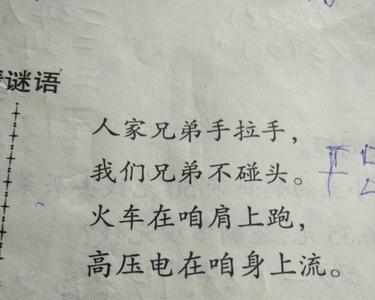 谜语
人家兄弟手拉手，
我们兄弟不碰头。
火车在咱肩上跑，
高压电在咱身上流。